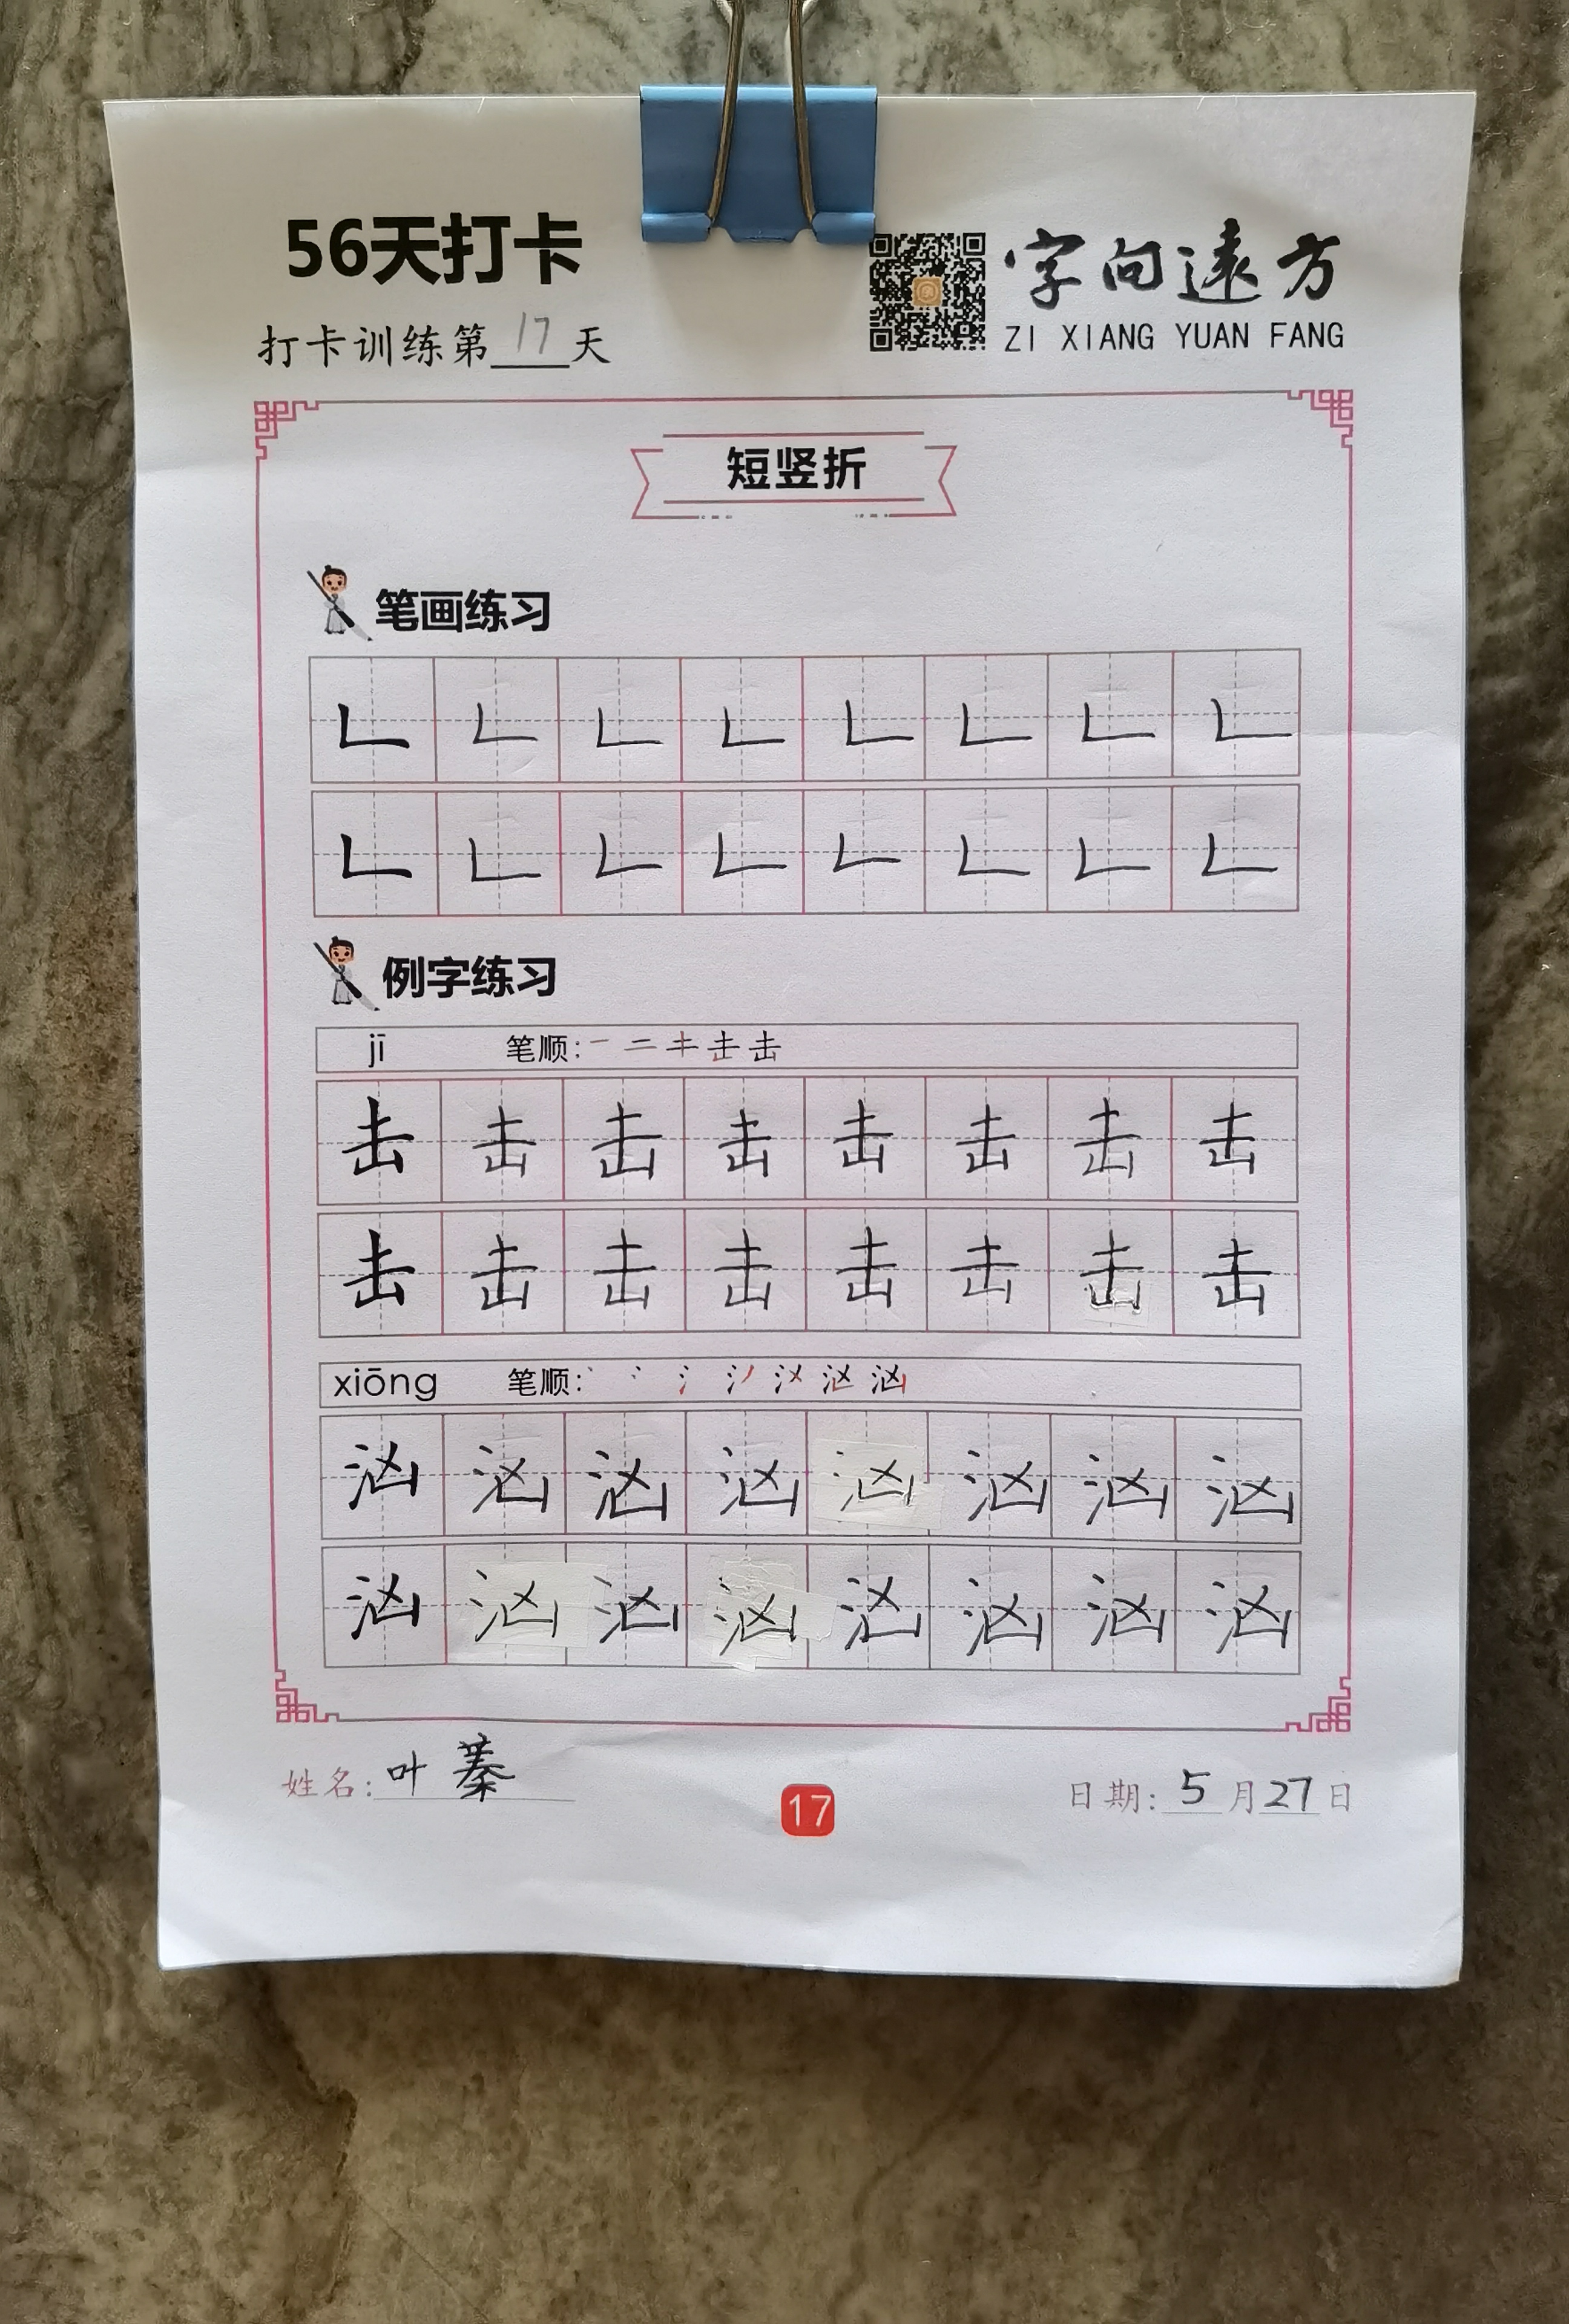 56天打卡
字向遠方
打卡训练第17天
ZI XIANG YUAN FANG
短竖折
笔画练习
𠃊 𠃊 𠃊 𠃊 𠃊 𠃊 𠃊 𠃊
𠃊 𠃊 𠃊 𠃊 𠃊 𠃊 𠃊 𠃊
例字练习
jī 笔顺:
击 击 击 击 击 击 击 击
击 击 击 击 击 击 击 击
xiōng 笔顺:
汹 汹 汹 汹 汹 汹 汹 汹
汹 汹 汹 汹 汹 汹 汹 汹
姓名:叶蓁
17
日期:5月27日